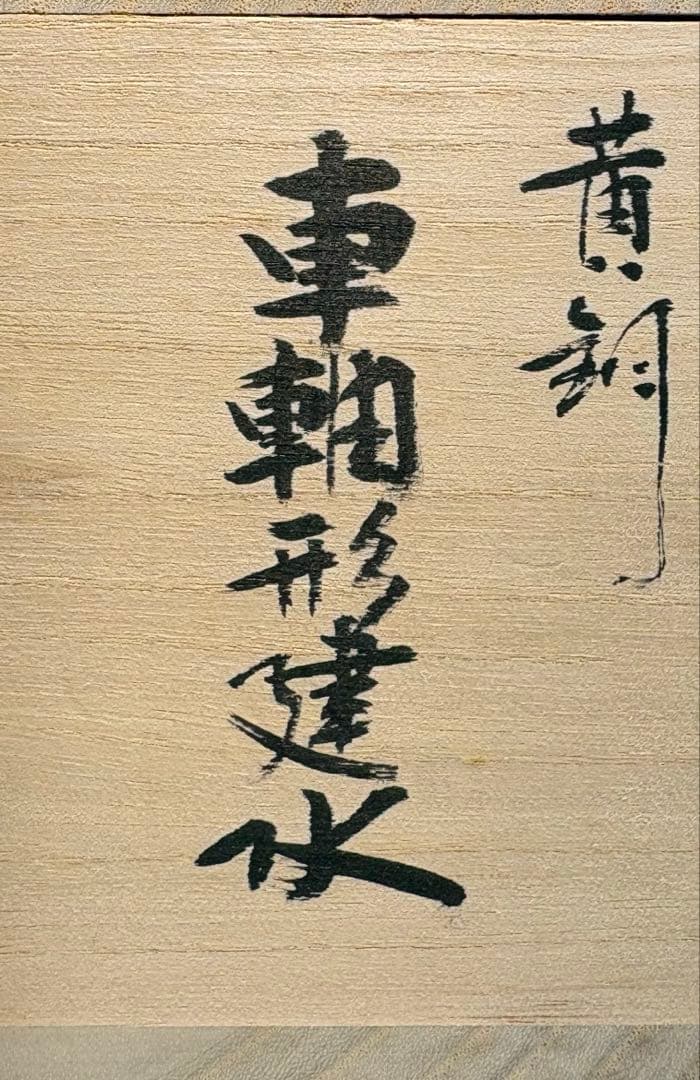 黄銅
車軸形建水